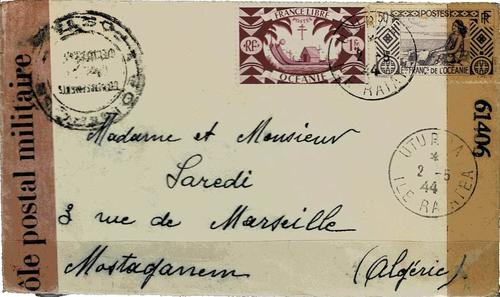 FRANCE LIBRE
POSTES
RF
1F
OCÉANIE
50
POSTES
RF
FRANC. DE L'OCÉANIE
44
RAIATEA
ôle postal militaire
61406
UTUROA
2-5
44
ILE RAIATEA
Madame et Monsieur
Saredi
3 rue de Marseille
Mostaganem (Algérie)